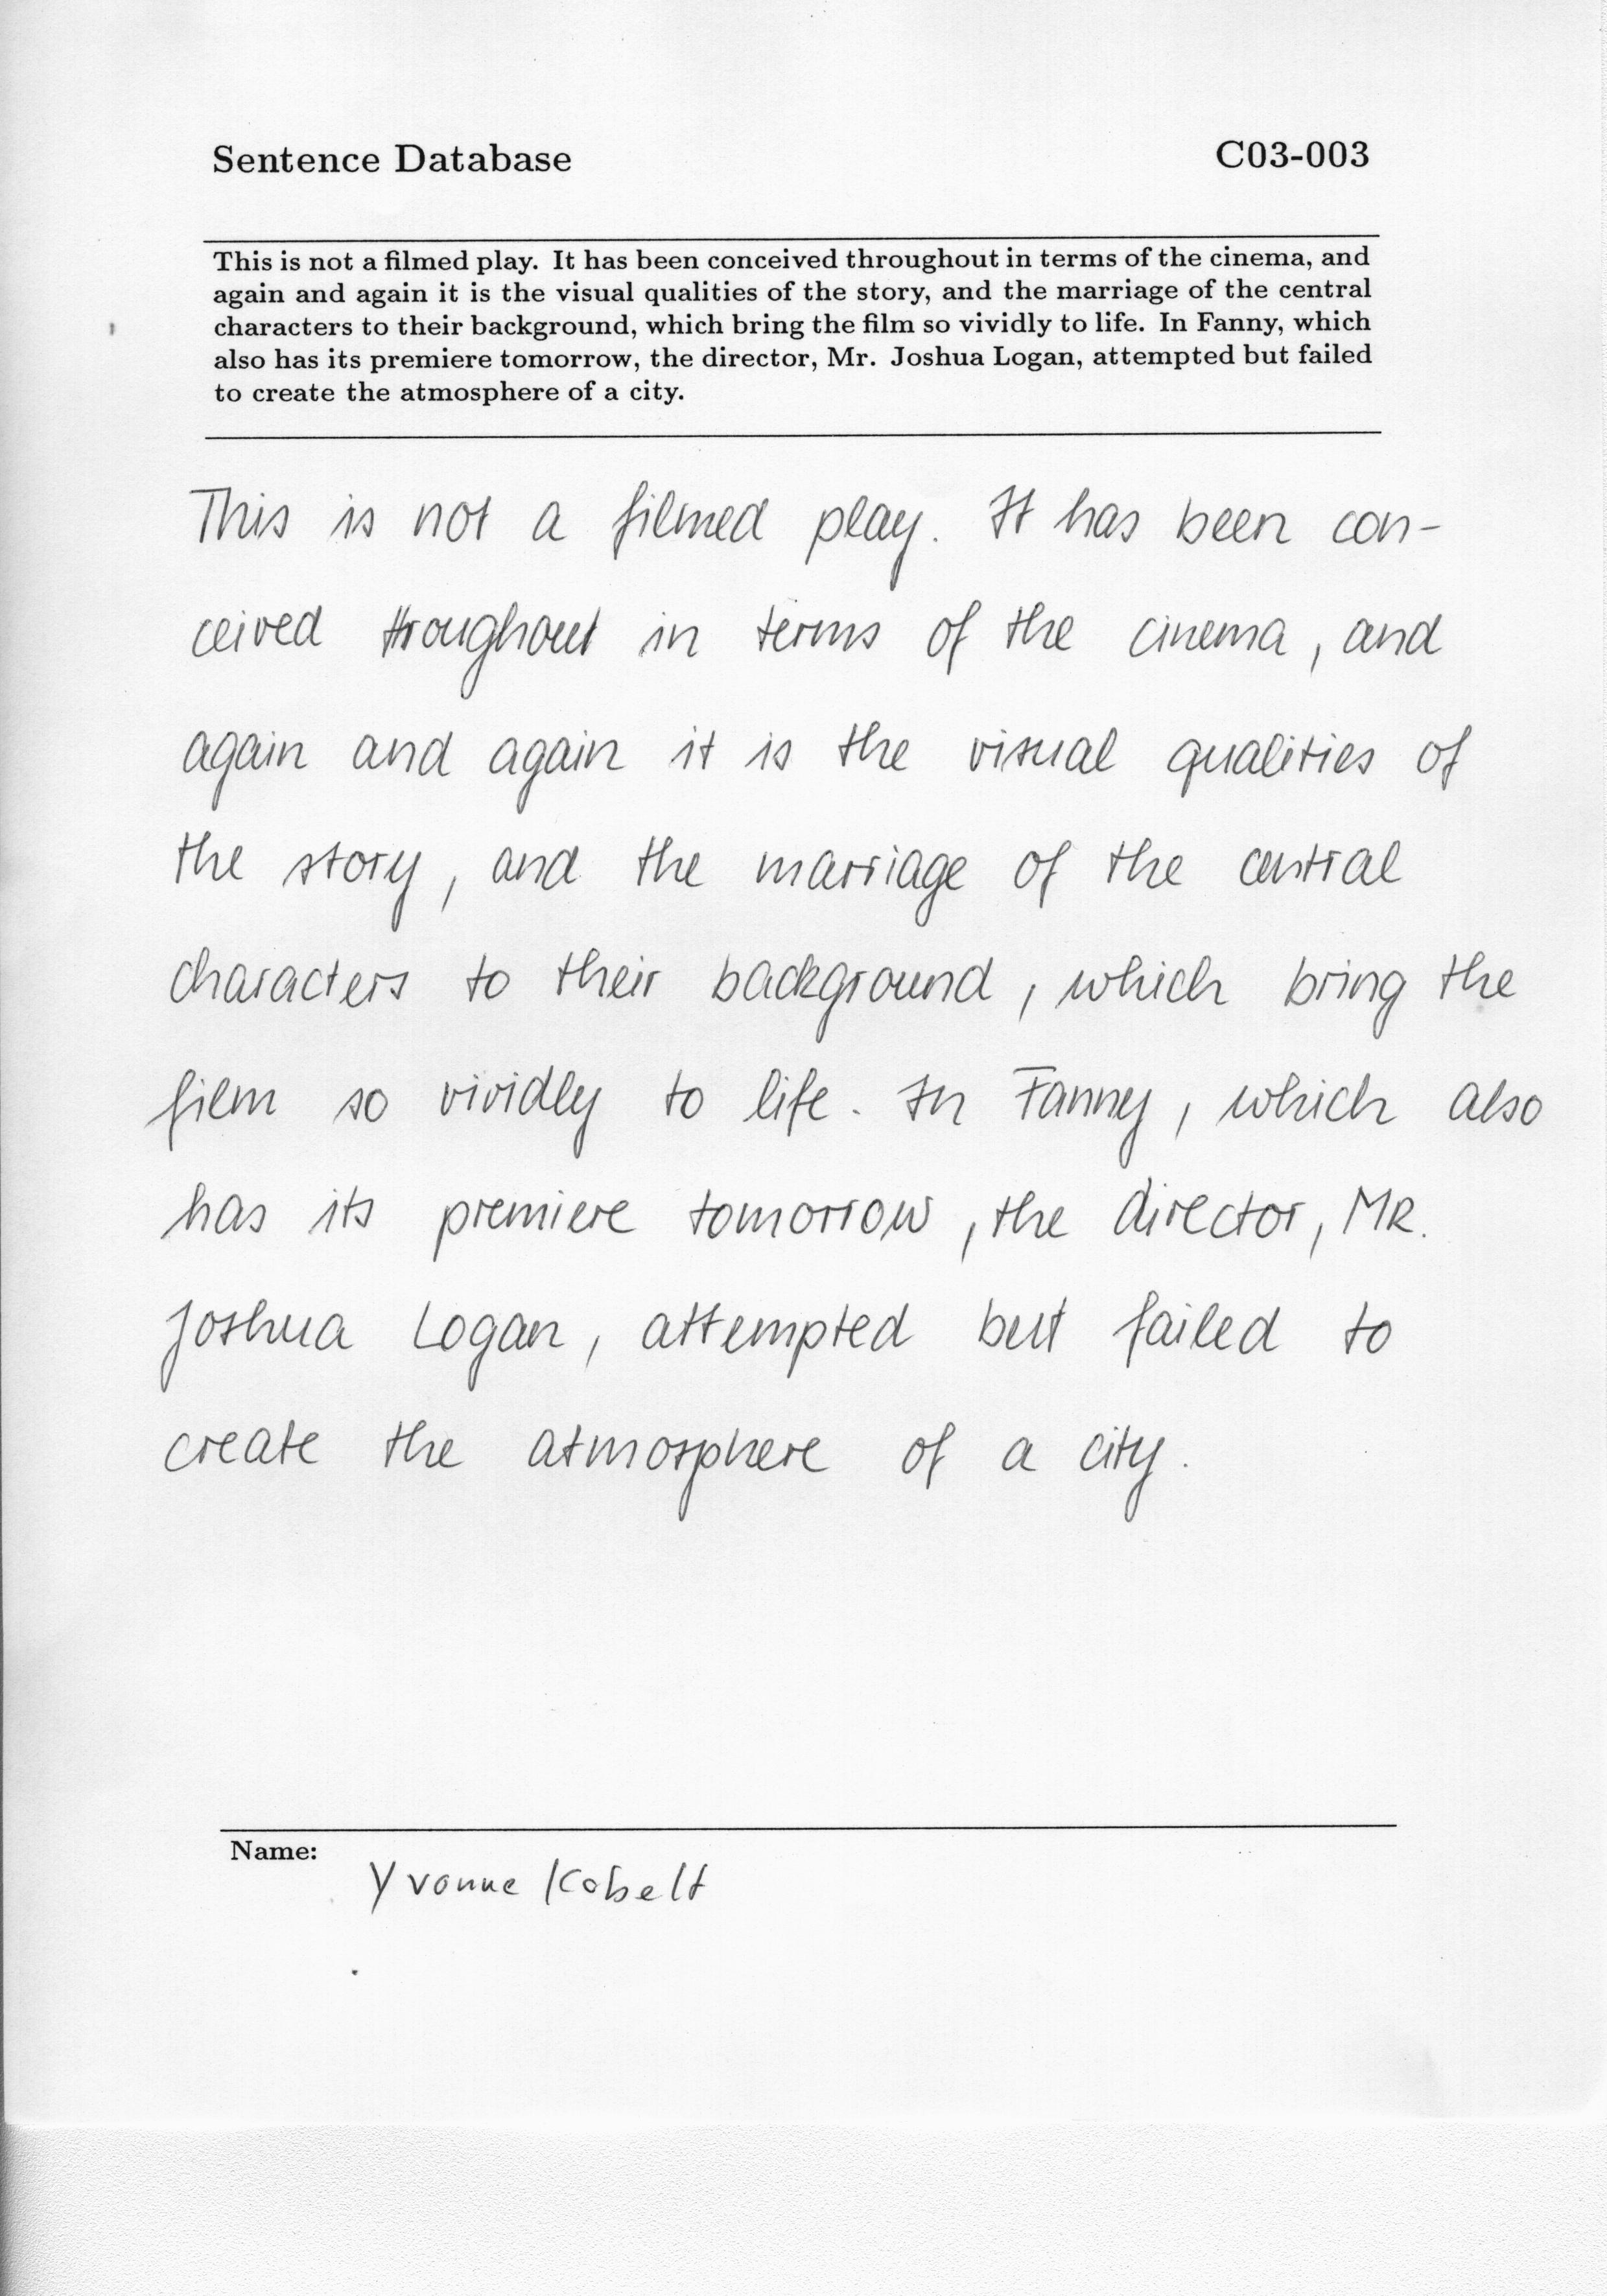 Sentence Database C03-003
This is not a filmed play. It has been conceived throughout in terms of the cinema, and
again and again it is the visual qualities of the story, and the marriage of the central
characters to their background, which bring the film so vividly to life. In Fanny, which
also has its premiere tomorrow, the director, Mr. Joshua Logan, attempted but failed
to create the atmosphere of a city.
This is not a filmed play. It has been con-
ceived throughout in terms of the cinema, and
again and again it is the visual qualities of
the story, and the marriage of the central
characters to their background, which bring the
film so vividly to life. In Fanny, which also
has its premiere tomorrow, the director, MR.
Joshua Logan, attempted but failed to
create the atmosphere of a city.
Name:
Yvonne Kobelt